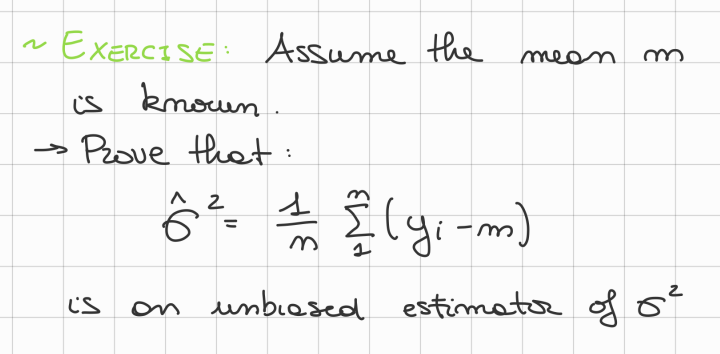 ~ EXERCISE: Assume the mean m
is known.
→ Prove that:
σ̂² = 1/n Σ₁ⁿ (yi - m)
is an unbiased estimator of σ²